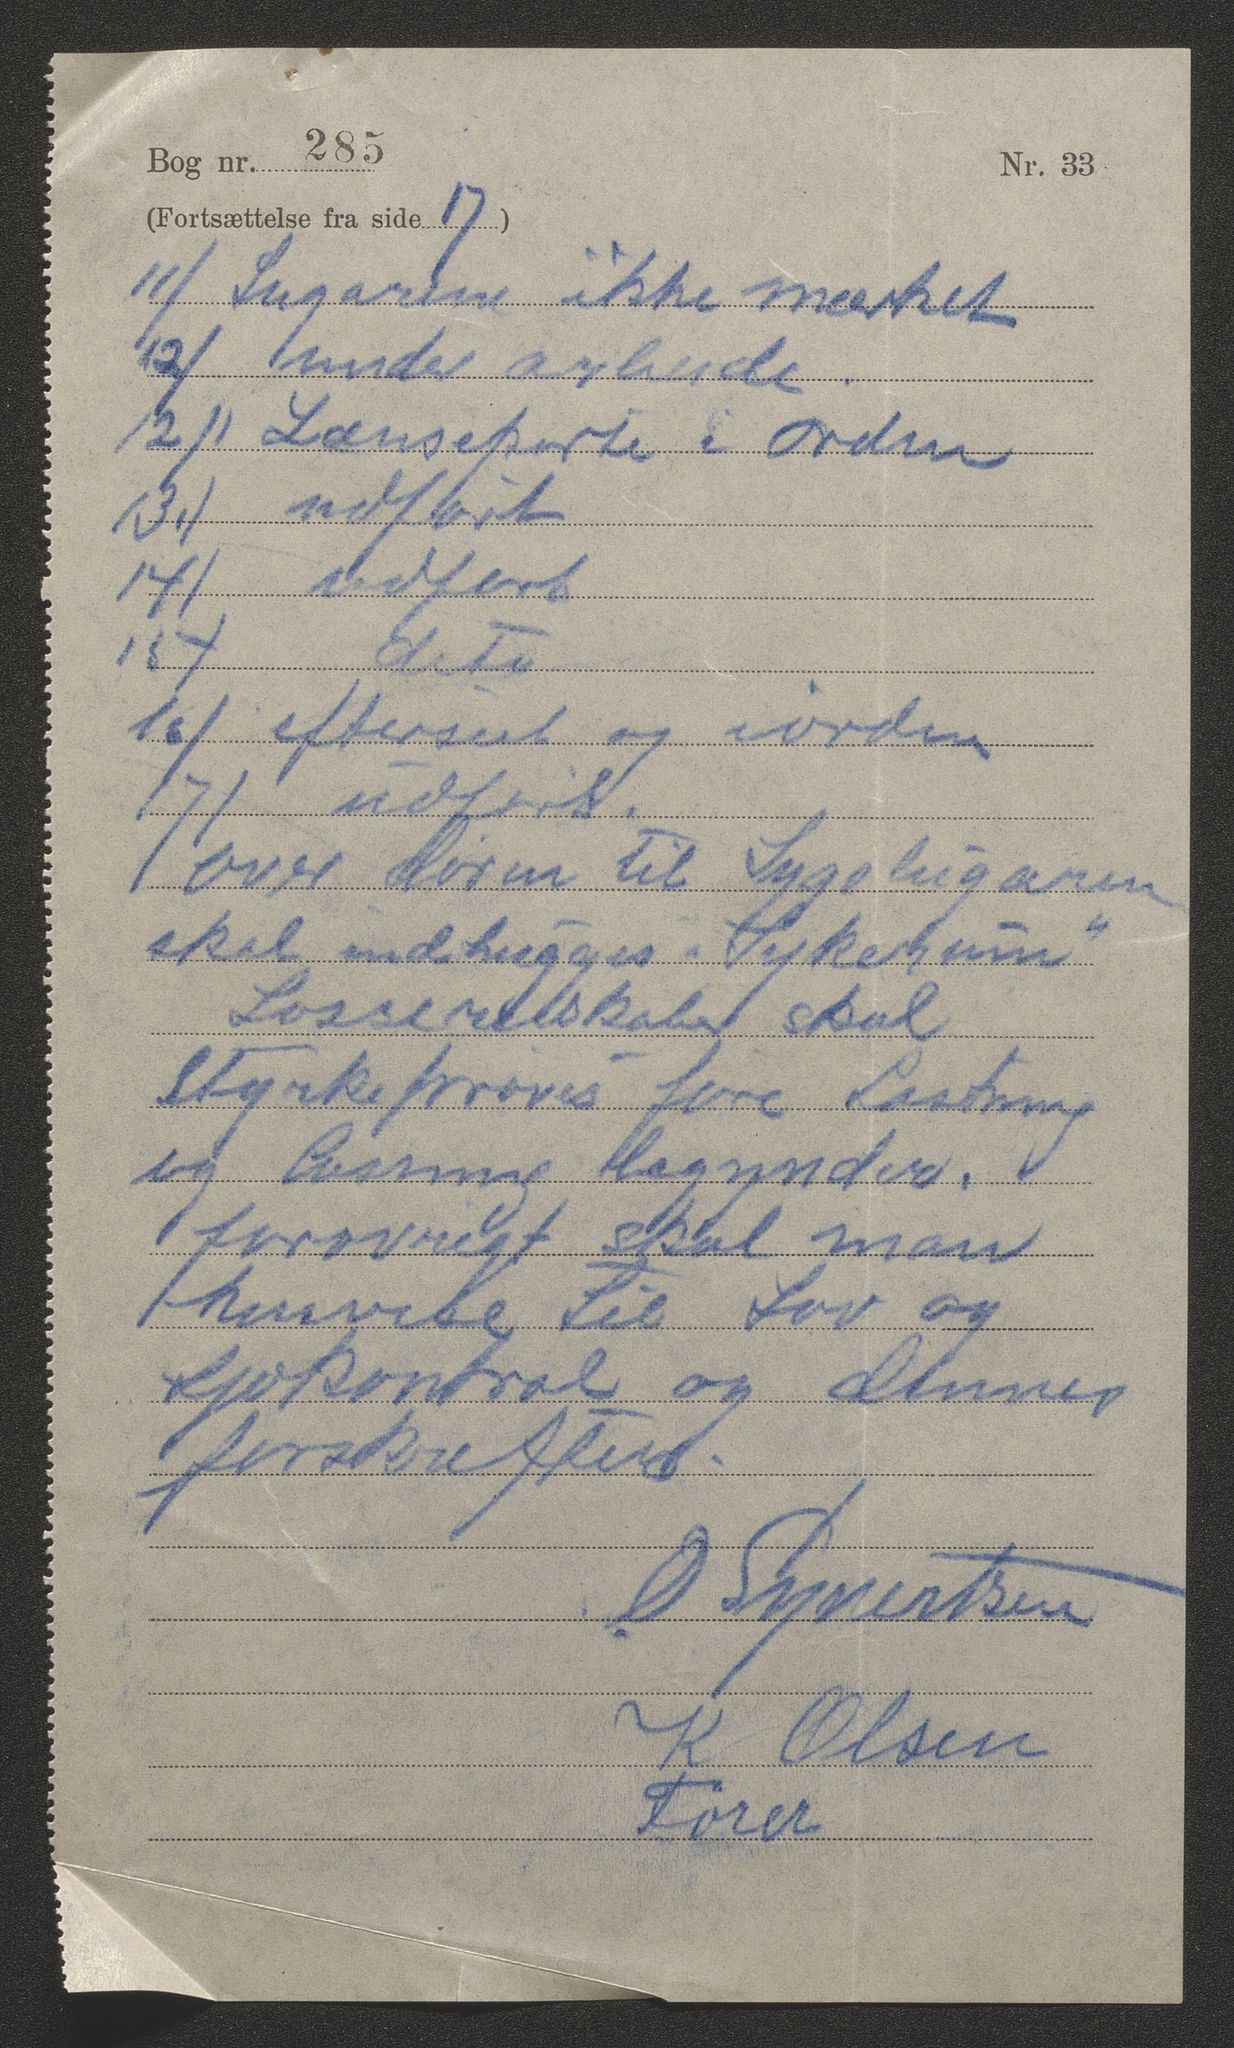 Bog nr. 285 Nr. 33
(Fortsættelse fra side 17)
11/ Lugarene ikke mærket
12/ under arbeide.
12/1 Lænseporte i orden
13/ udført
14/ udført
15/ deto
16/ efterseet og iorden
17/ udført.
over døren til Sygelugaren
skal indhugges "Sykerum"
Losseredskaber skal
Styrkeprøves føre Lastning
og Losning begynder.
forøvrigt skal man
henvise til Lov og
Sjøkontrol og dennes
forskrefter.
O Syvertsen
K Olsen
Fører